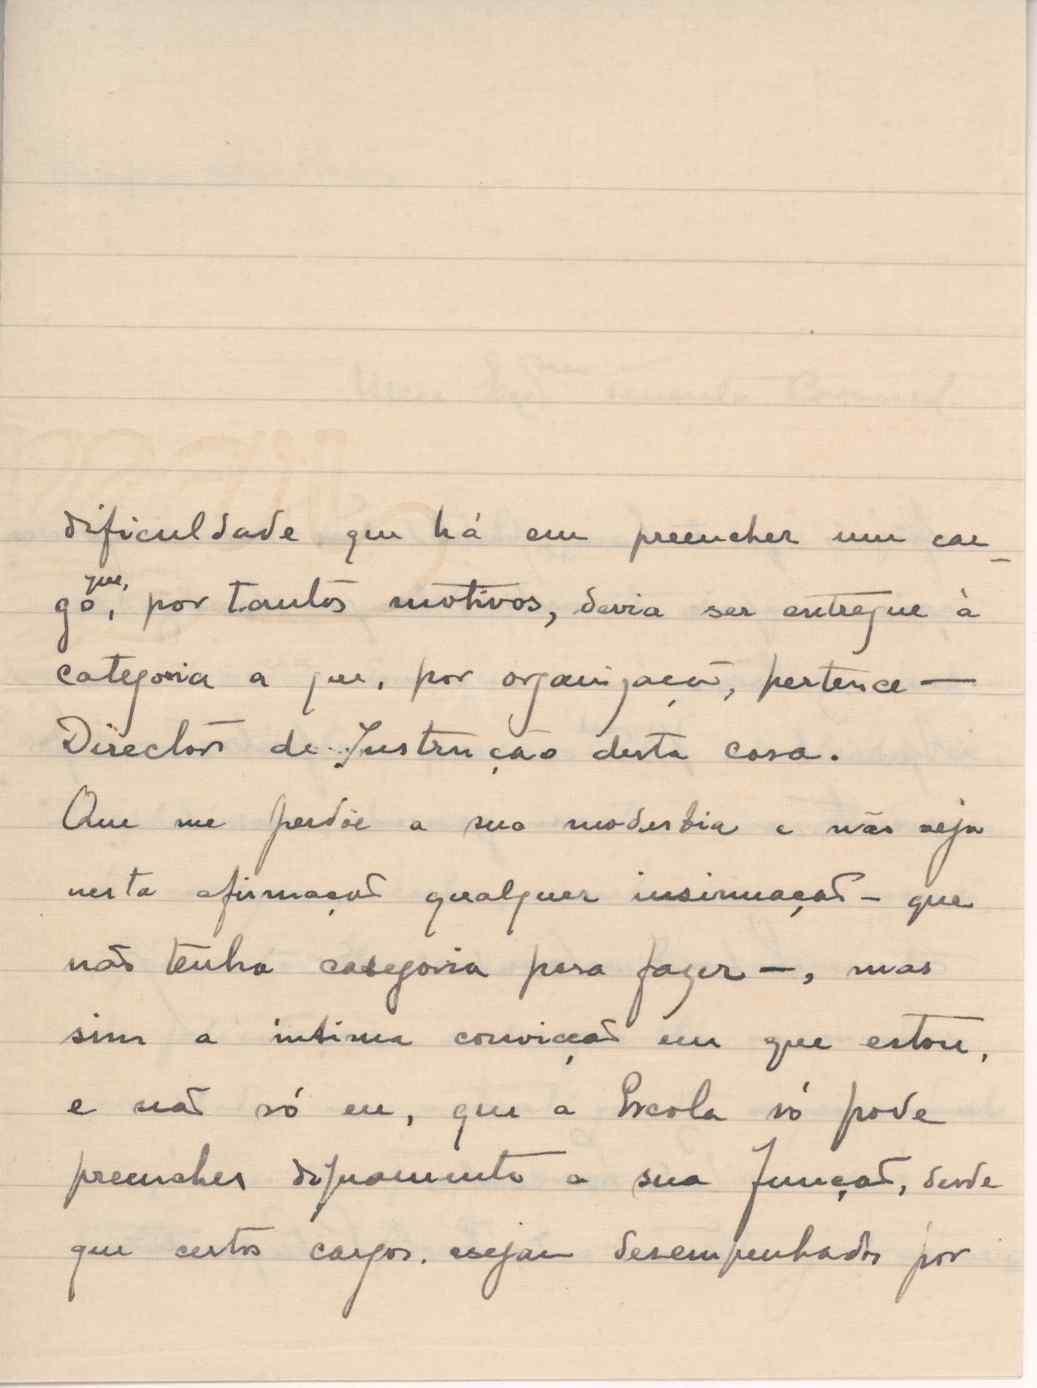 dificuldade que há em preencher um car-
go que, por tantos motivos, devia ser entregue à
categoria a que, por organização, pertence —
Director de Instrução desta casa.
Que me perdôe a sua modestia e não veja
nesta afirmação qualquer insinuação – que
não tenho categoria para fazer –, mas
sim a intima convicção em que estou,
e não só eu, que a Escola só pode
preencher dignamente a sua função, desde
que certos cargos sejam desempenhados por